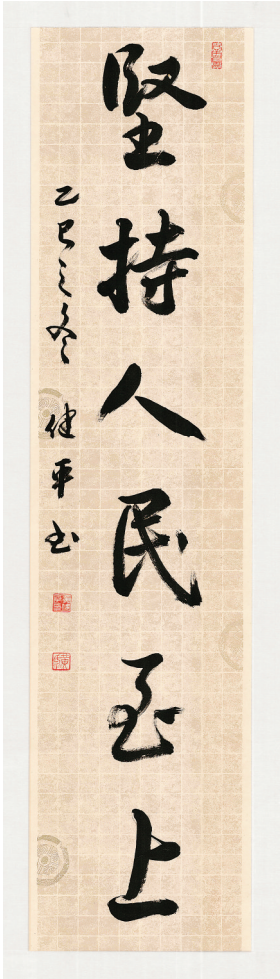 堅持人民至上
乙巳之冬 健平书